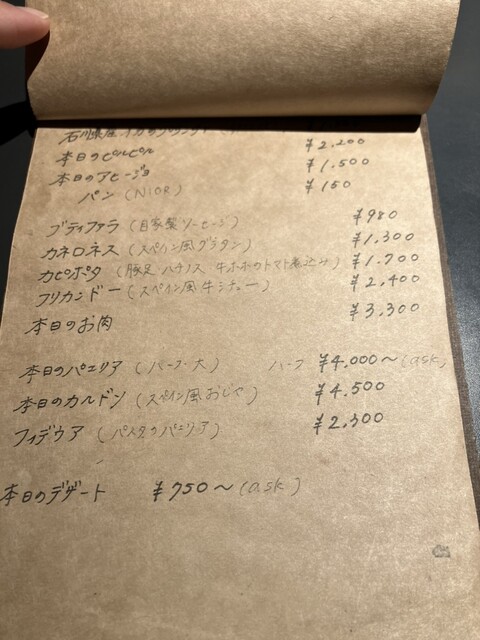 石川県産イカの
本日のピルピル ¥2,200
本日のアヒージョ ¥1,500
パン (NIOR) ¥150
ブティファラ (自家製ソーセージ) ¥980
カネロネス (スペイン風グラタン) ¥1,300
カピポタ (豚足 ハチノス 牛ホホのトマト煮込み) ¥1,700
フリカンドー (スペイン風 牛シチュー) ¥2,400
本日のお肉 ¥3,300
本日のパエリア (ハーフ・大) ハーフ ¥4,000〜 (ask)
本日のカルドソ (スペイン風おじや) ¥4,500
フィデウア (パスタのパエリア) ¥2,300
本日のデザート ¥750〜 (ask)